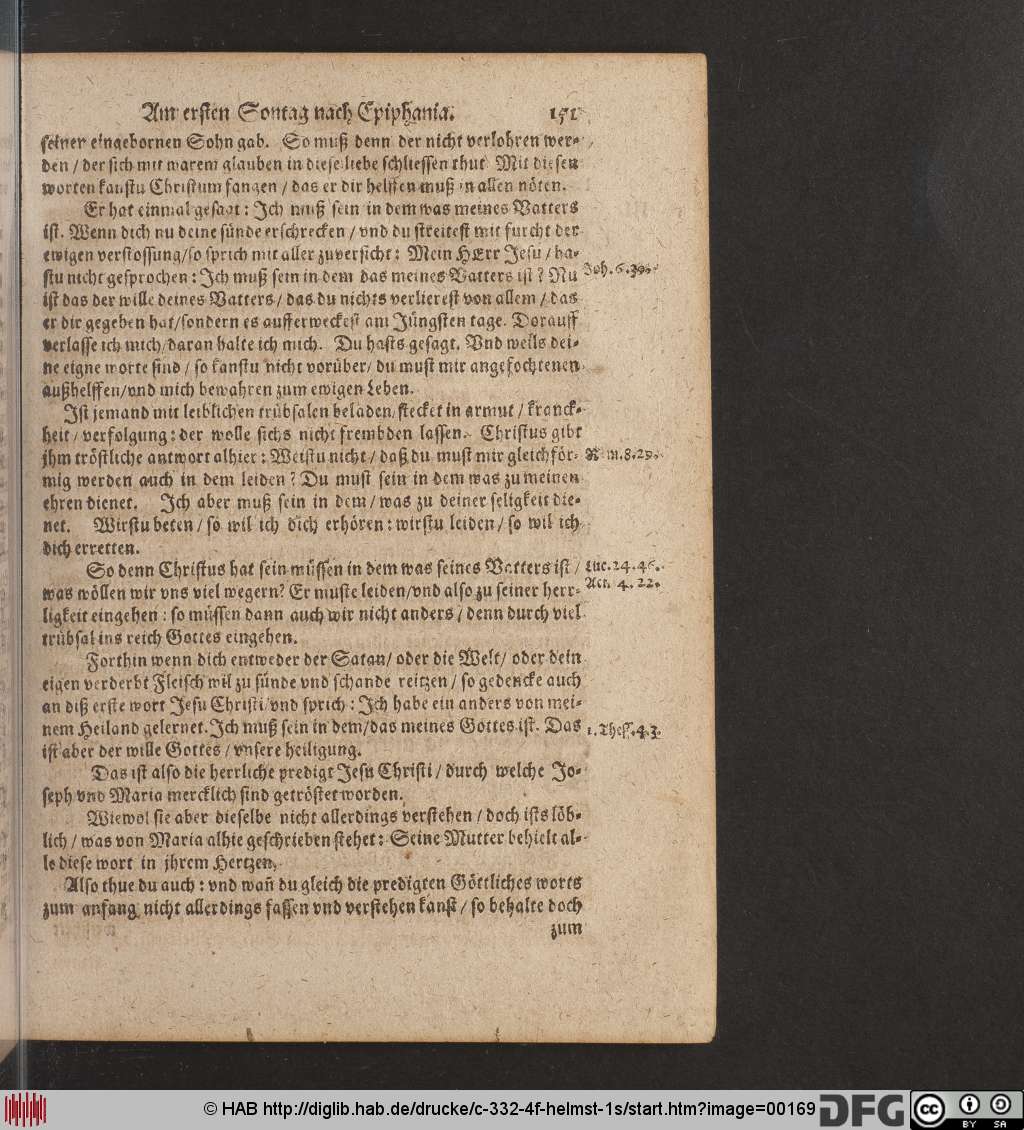 Am ersten Sontag nach Epiphania. 151
seiner eingebornen Sohn gab. So muß denn der nicht verlohren wer-
den / der sich mit warem glauben in diese liebe schliessen thut Mit diesen
worten kanstu Christum fangen / das er dir helffen muß in allen nöten.
Er hat einmal gesagt: Ich muß sein in dem was meines Vatters
ist. Wenn dich nu deine sünde erschrecken / vnd du streitest mit furcht der
ewigen verstossung/so sprich mit aller zuversicht: Mein HErr Jesu / ha-
stu nicht gesprochen: Ich muß sein in dem das meines Vatters ist? Nu
Joh. 6.39.
ist das der wille deines Vatters / das du nichts verlierest von allem / das
er dir gegeben hat/sondern es aufferweckest am Jüngsten tage. Dorauff
verlasse ich mich/daran halte ich mich. Du hasts gesagt. Vnd weils dei-
ne eigne worte sind / so kanstu nicht vorüber/ du must mir angefochtenen
außhelffen/vnd mich bewahren zum ewigen Leben.
Ist jemand mit leiblichen trübsalen beladen/stecket in armut / kranck-
heit / verfolgung: der wolle sichs nicht frembden lassen. Christus gibt
jhm tröstliche antwort alhier: Weistu nicht / daß du must mir gleichför-
Rom.8.29.
mig werden auch in dem leiden? Du must sein in dem was zu meinen
ehren dienet. Ich aber muß sein in dem / was zu deiner seligkeit die-
net. Wirstu beten / so wil ich dich erhören: wirstu leiden / so wil ich
dich erretten.
So denn Christus hat sein müssen in dem was seines Vatters ist /
Luc.24.46.
was wöllen wir vns viel wegern? Er muste leiden/vnd also zu seiner herr-
Act. 4.22.
ligkeit eingehen: so müssen dann auch wir nicht anders / denn durch viel
trübsal ins reich Gottes eingehen.
Forthin wenn dich entweder der Satan/ oder die Welt/ oder dein
eigen verderbt Fleisch wil zu sünde vnd schande reitzen / so gedencke auch
an diß erste wort Jesu Christi/vnd sprich: Ich habe ein anders von mei-
nem Heiland gelernet. Ich muß sein in dem/das meines Gottes ist. Das
1. Thess.4.3.
ist aber der wille Gottes / vnsere heiligung.
Das ist also die herrliche predigt Jesu Christi / durch welche Jo-
seph vnd Maria mercklich sind getröstet worden.
Wiewol sie aber dieselbe nicht allerdings verstehen / doch ists löb-
lich / was von Maria alhie geschrieben stehet: Seine Mutter behielt al-
le diese wort in jhrem Hertzen.
Also thue du auch: vnd wañ du gleich die predigten Göttliches worts
zum anfang nicht allerdings fassen vnd verstehen kanst / so behalte doch
zum
© HAB http://diglib.hab.de/drucke/c-332-4f-helmst-1s/start.htm?image=00169
DFG
cc BY SA